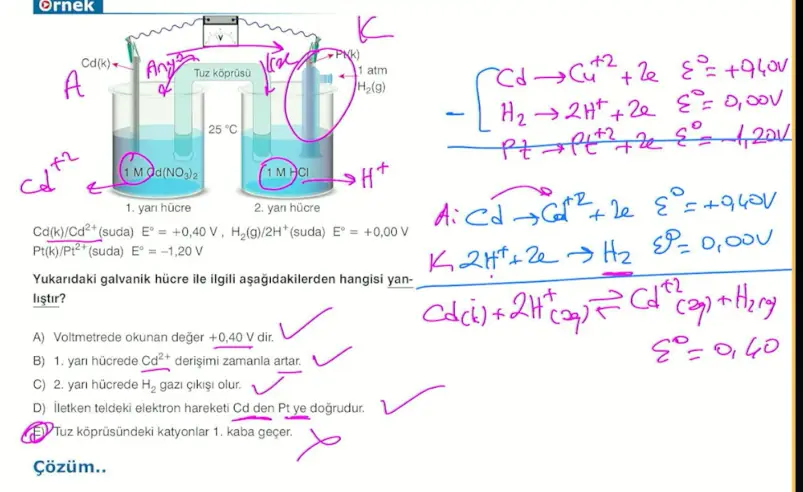 Örnek
K
V
Cd(k)
Pt(k)
A
Anyon
Tuz köprüsü
1 atm
H₂(g)
25 °C
Cd⁺²
1 M Cd(NO₃)₂
1 M HCl
H⁺
1. yarı hücre
2. yarı hücre
Cd(k)/Cd²⁺(suda) E° = +0,40 V , H₂(g)/2H⁺(suda) E° = +0,00 V
Pt(k)/Pt²⁺(suda) E° = −1,20 V
Yukarıdaki galvanik hücre ile ilgili aşağıdakilerden hangisi yan-
lıştır?
A) Voltmetrede okunan değer +0,40 V dir.
B) 1. yarı hücrede Cd²⁺ derişimi zamanla artar.
C) 2. yarı hücrede H₂ gazı çıkışı olur.
D) İletken teldeki elektron hareketi Cd den Pt ye doğrudur.
E) Tuz köprüsündeki katyonlar 1. kaba geçer.
Çözüm..
Cd → Cu⁺² + 2e ε° = +0,40V
H₂ → 2H⁺ + 2e ε° = 0,00V
Pt → Pt⁺² + 2e ε° = -1,20V
A: Cd → Cd⁺² + 2e ε° = +0,40V
K: 2H⁺ + 2e → H₂ ε° = 0,00V
Cd(k) + 2H⁺(aq) ⇌ Cd⁺²(aq) + H₂(g)
ε° = 0,40